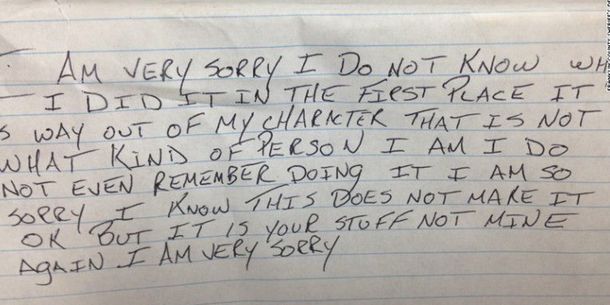 AM VERY SORRY I DO NOT KNOW WH
I DID IT IN THE FIRST PLACE IT
S WAY OUT OF MY CHARACTER THAT IS NOT
WHAT KIND OF PERSON I AM I DO
NOT EVEN REMEMBER DOING IT I AM SO
SORRY I KNOW THIS DOES NOT MAKE IT
OK BUT IT IS YOUR STUFF NOT MINE
AGAIN I AM VERY SORRY